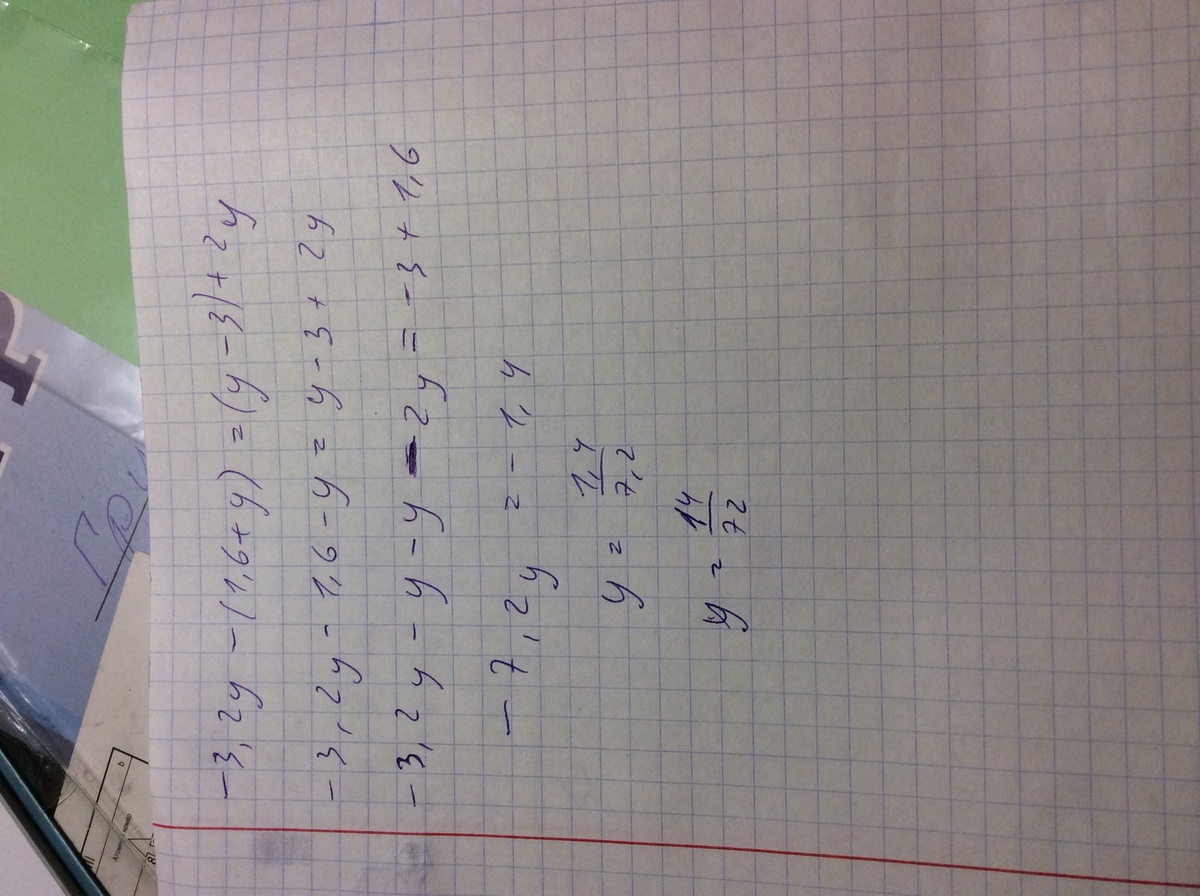 -3,2y - (1,6+y) = (y-3) + 2y
-3,2y - 1,6 - y = y - 3 + 2y
-3,2y - y - y - 2y = -3 + 1,6
-7,2y = -1,4
y = 1,4/7,2
y = 14/72